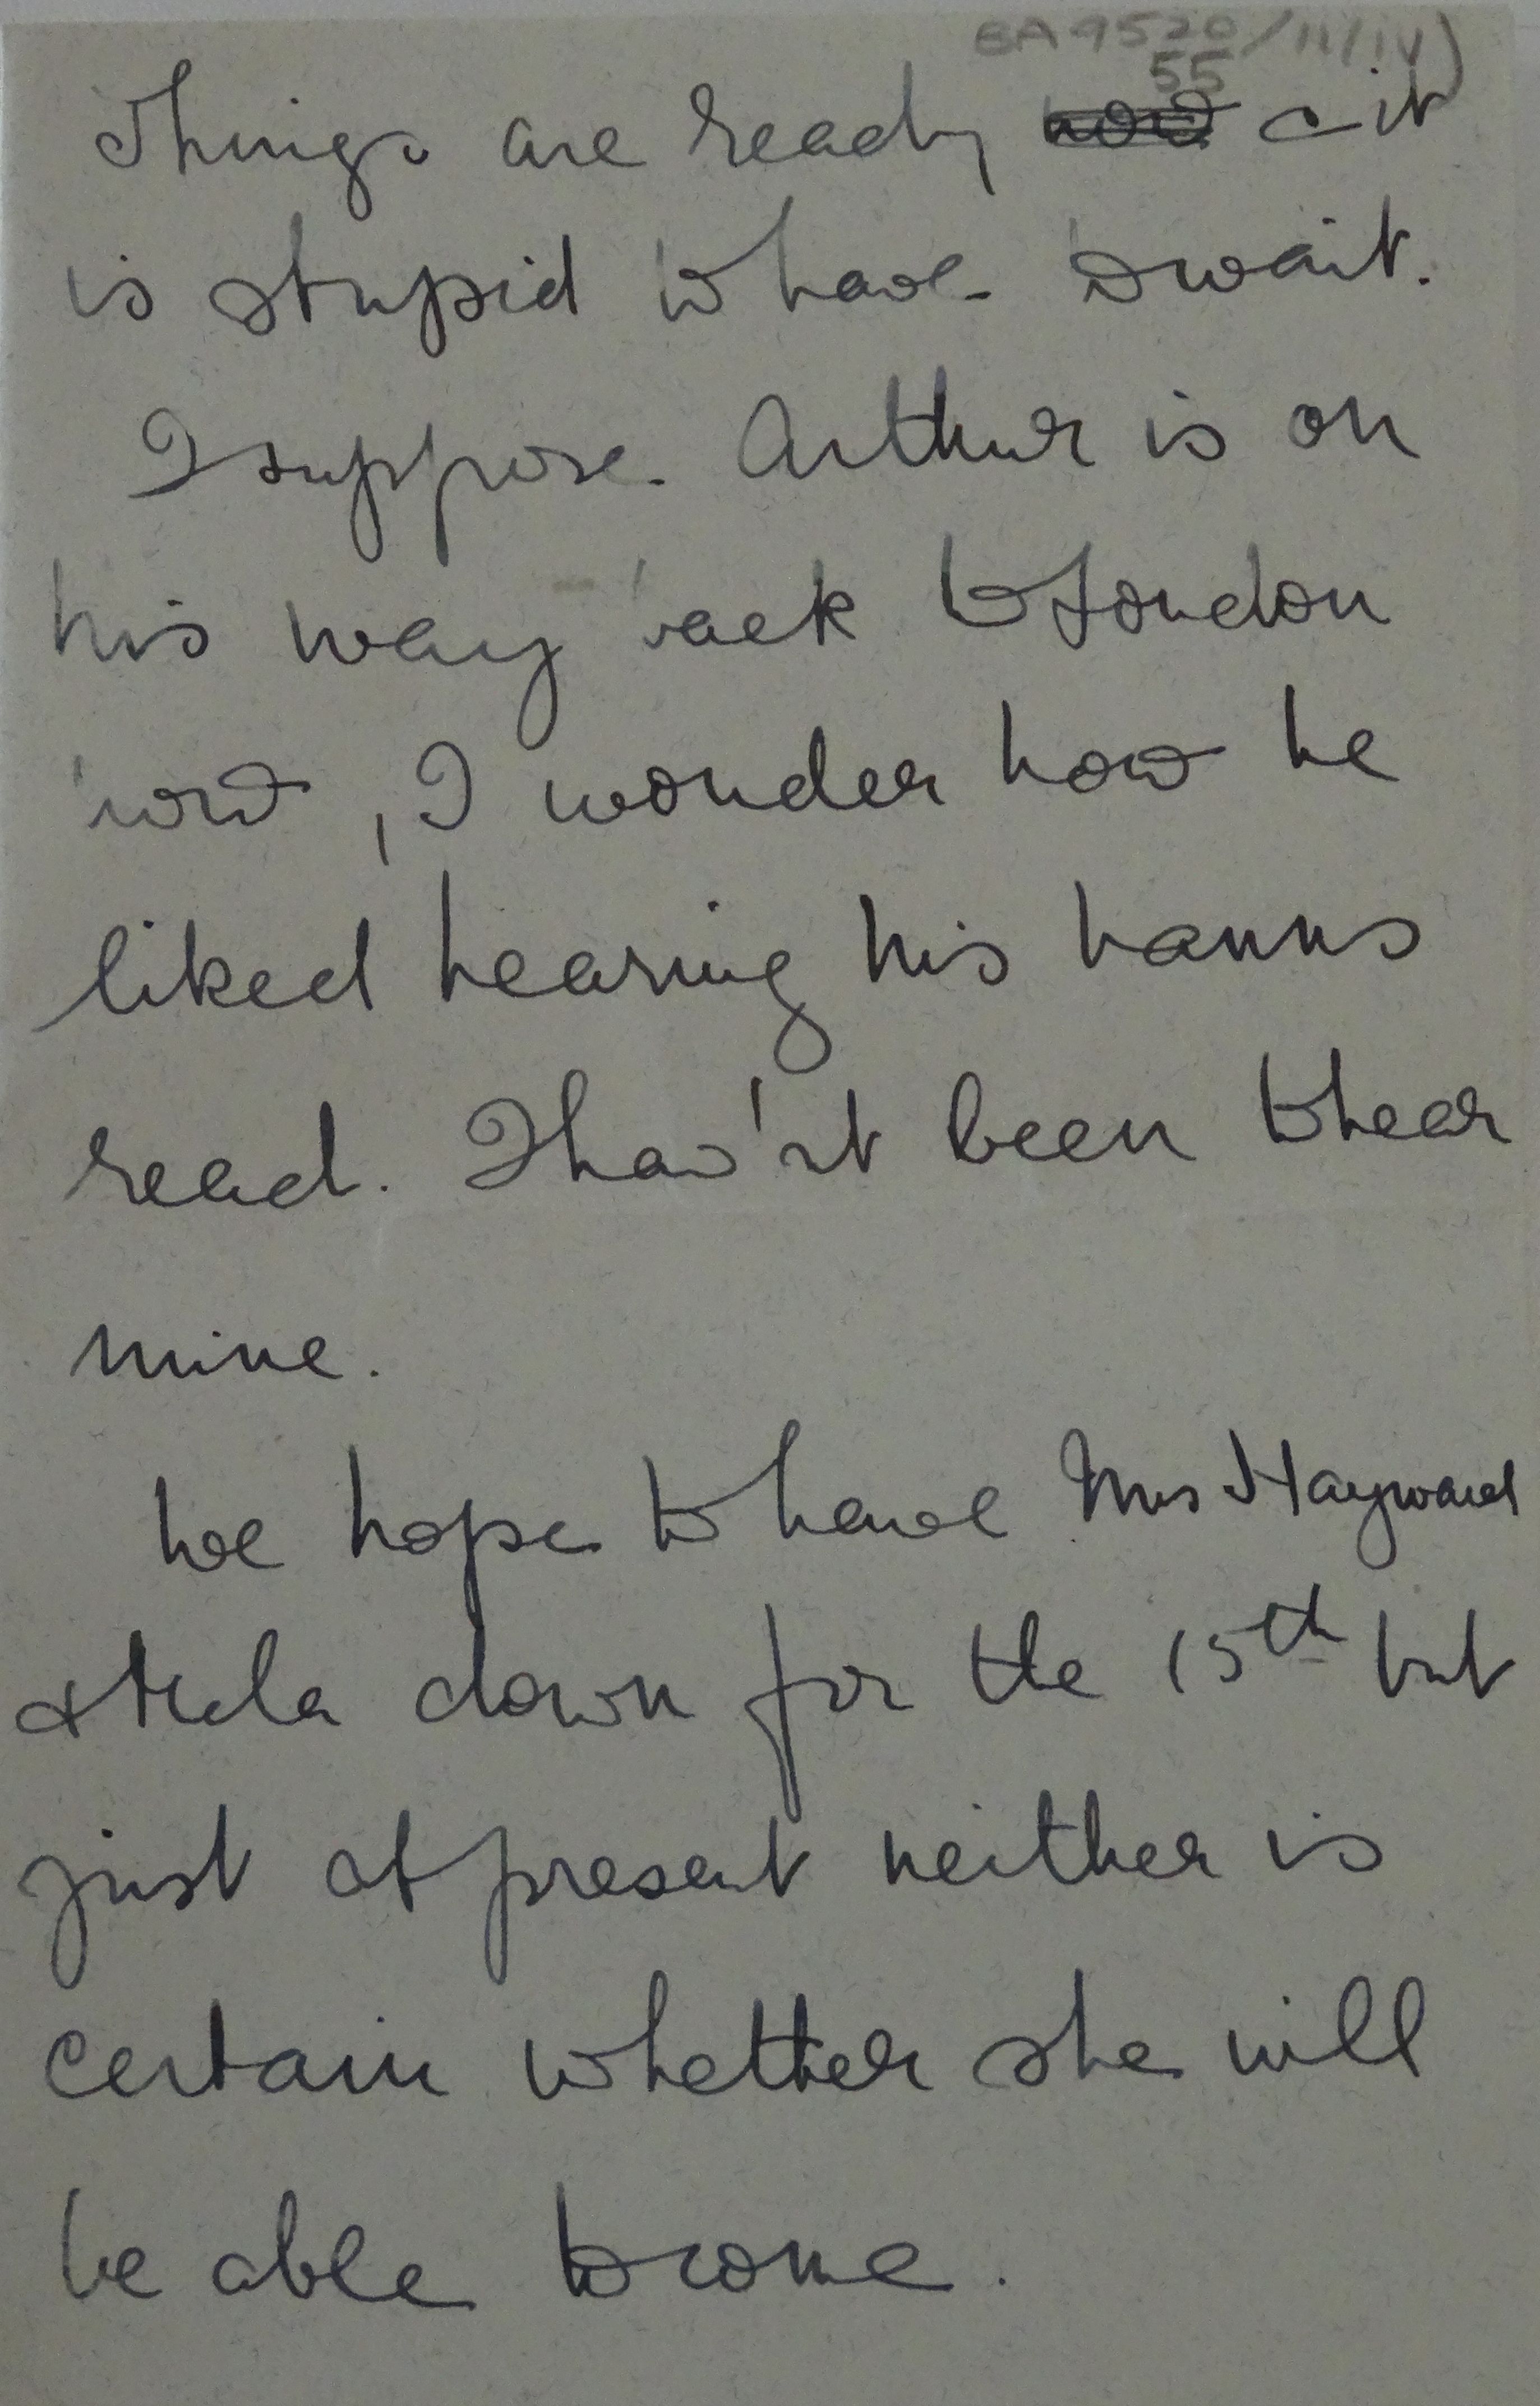 BA 9520/11/iv)
55
Things are ready now & it
is stupid to have to wait.
I suppose Arthur is on
his way back to London
now, I wonder how he
liked hearing his banns
read. I hav'nt been to hear
mine.
We hope to have Mrs Hayward
& down for the 15th but
just at present neither is
certain whether she will
be able to come.